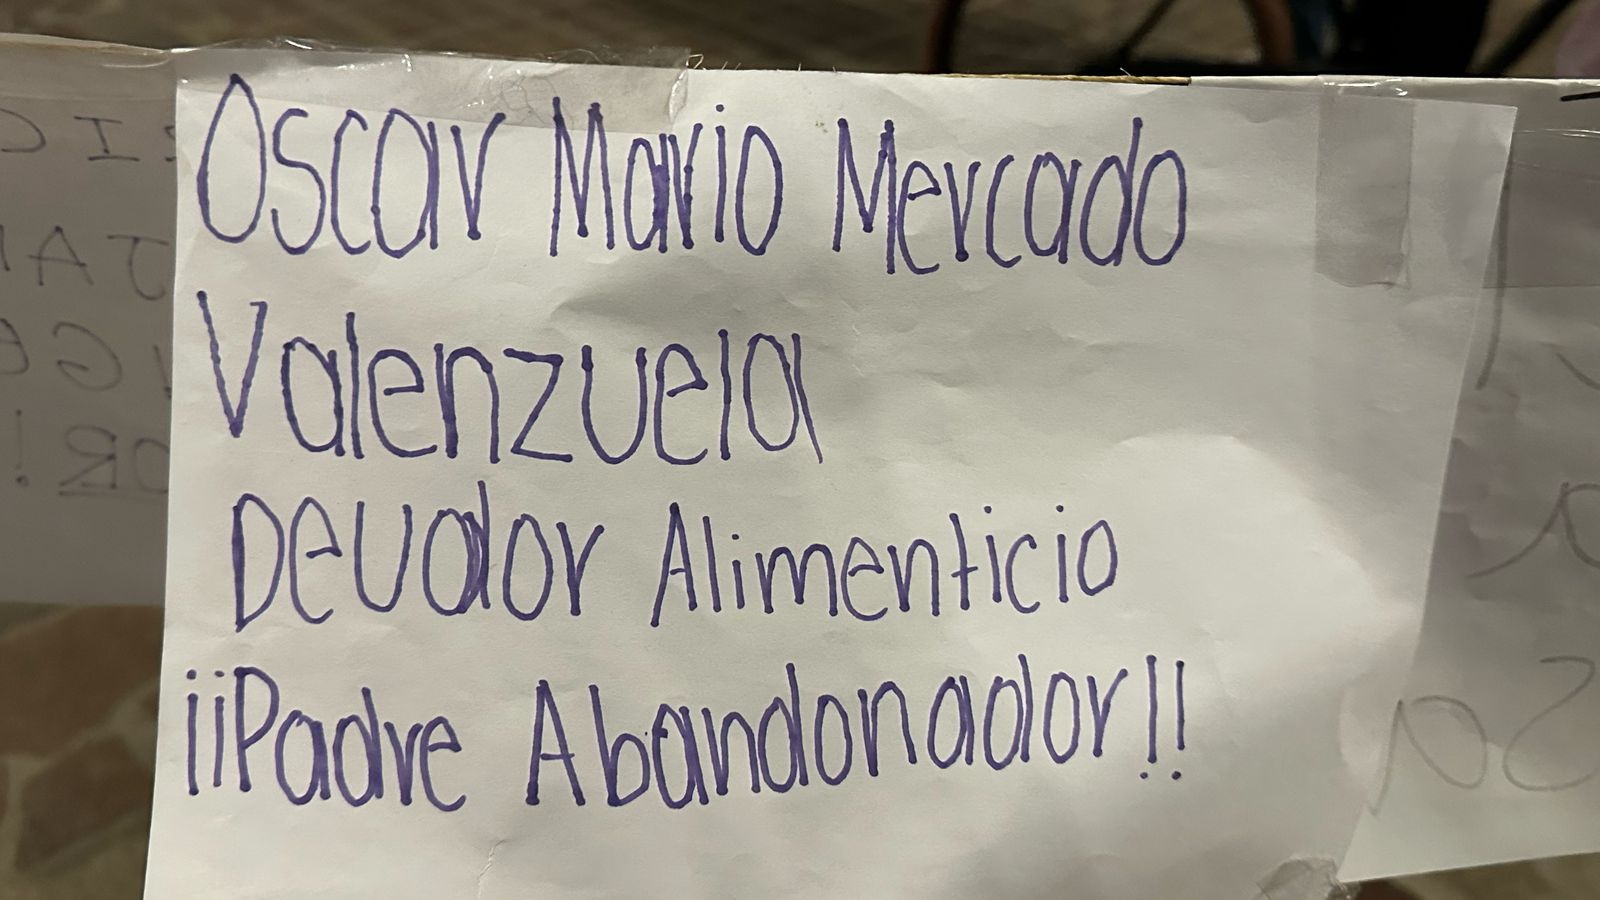 Oscar Mario Mercado
Valenzuela
Deudor Alimenticio
¡¡Padre Abandonador!!